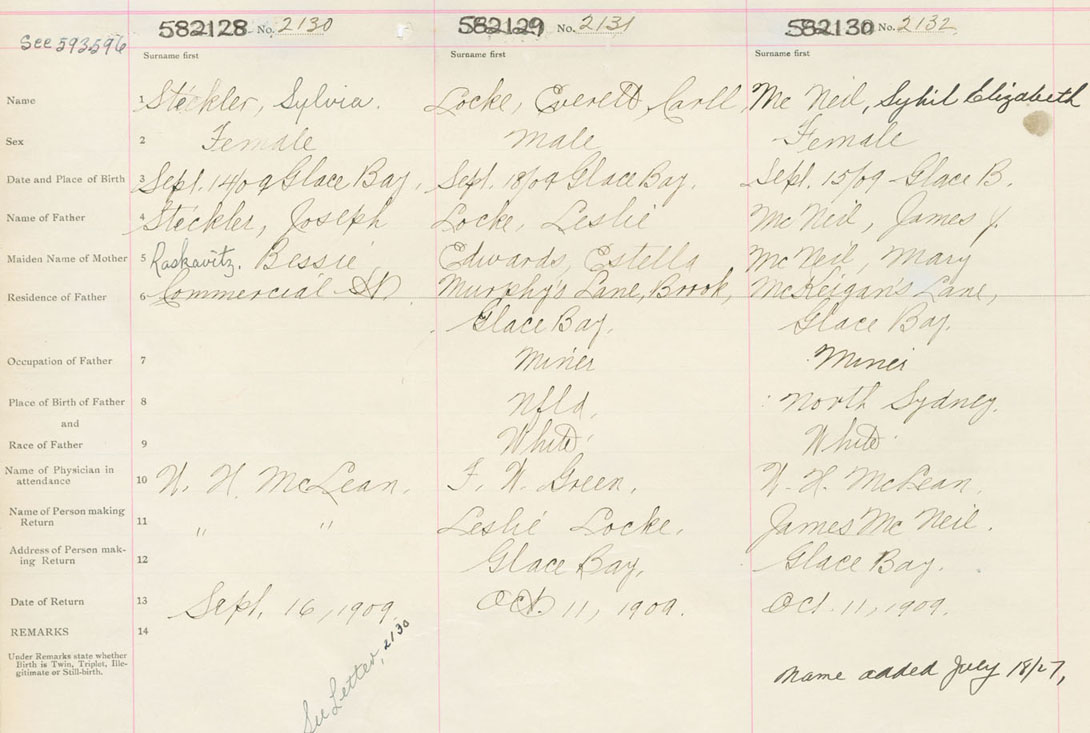 See 593596
582128 No. 2130
582129 No. 2131
582130 No. 2132
Surname first
Surname first
Surname first
Name 1 Steckler, Sylvia. Locke, Everett Carll Mc Neil, Sybil Elizabeth
Sex 2 Female Male Female
Date and Place of Birth 3 Sept. 14/09 Glace Bay, Sept. 18/09 Glace Bay. Sept. 15/09 Glace B.
Name of Father 4 Steckler, Joseph Locke, Leslie Mc Neil, James J.
Maiden Name of Mother 5 Raskavitz. Bessie Edwards, Estella Mc Neil, Mary
Residence of Father 6 Commercial St. Murphy's Lane, Brook, McKeigan's Lane,
Glace Bay. Glace Bay.
Occupation of Father 7 Miner Miner
Place of Birth of Father 8 Nfld. North Sydney.
and
Race of Father 9 White White
Name of Physician in
attendance 10 McLean. F. W. Green. McLean.
Name of Person making
Return 11 " " Leslie Locke. James Mc Neil.
Address of Person mak-
ing Return 12 Glace Bay. Glace Bay.
Date of Return 13 Sept. 16, 1909. Oct. 11, 1909. Oct. 11, 1909.
REMARKS 14
Under Remarks state whether
Birth is Twin, Triplet, Ille-
gitimate or Still-birth.
See Letter, 2130
Name added July 18/27,